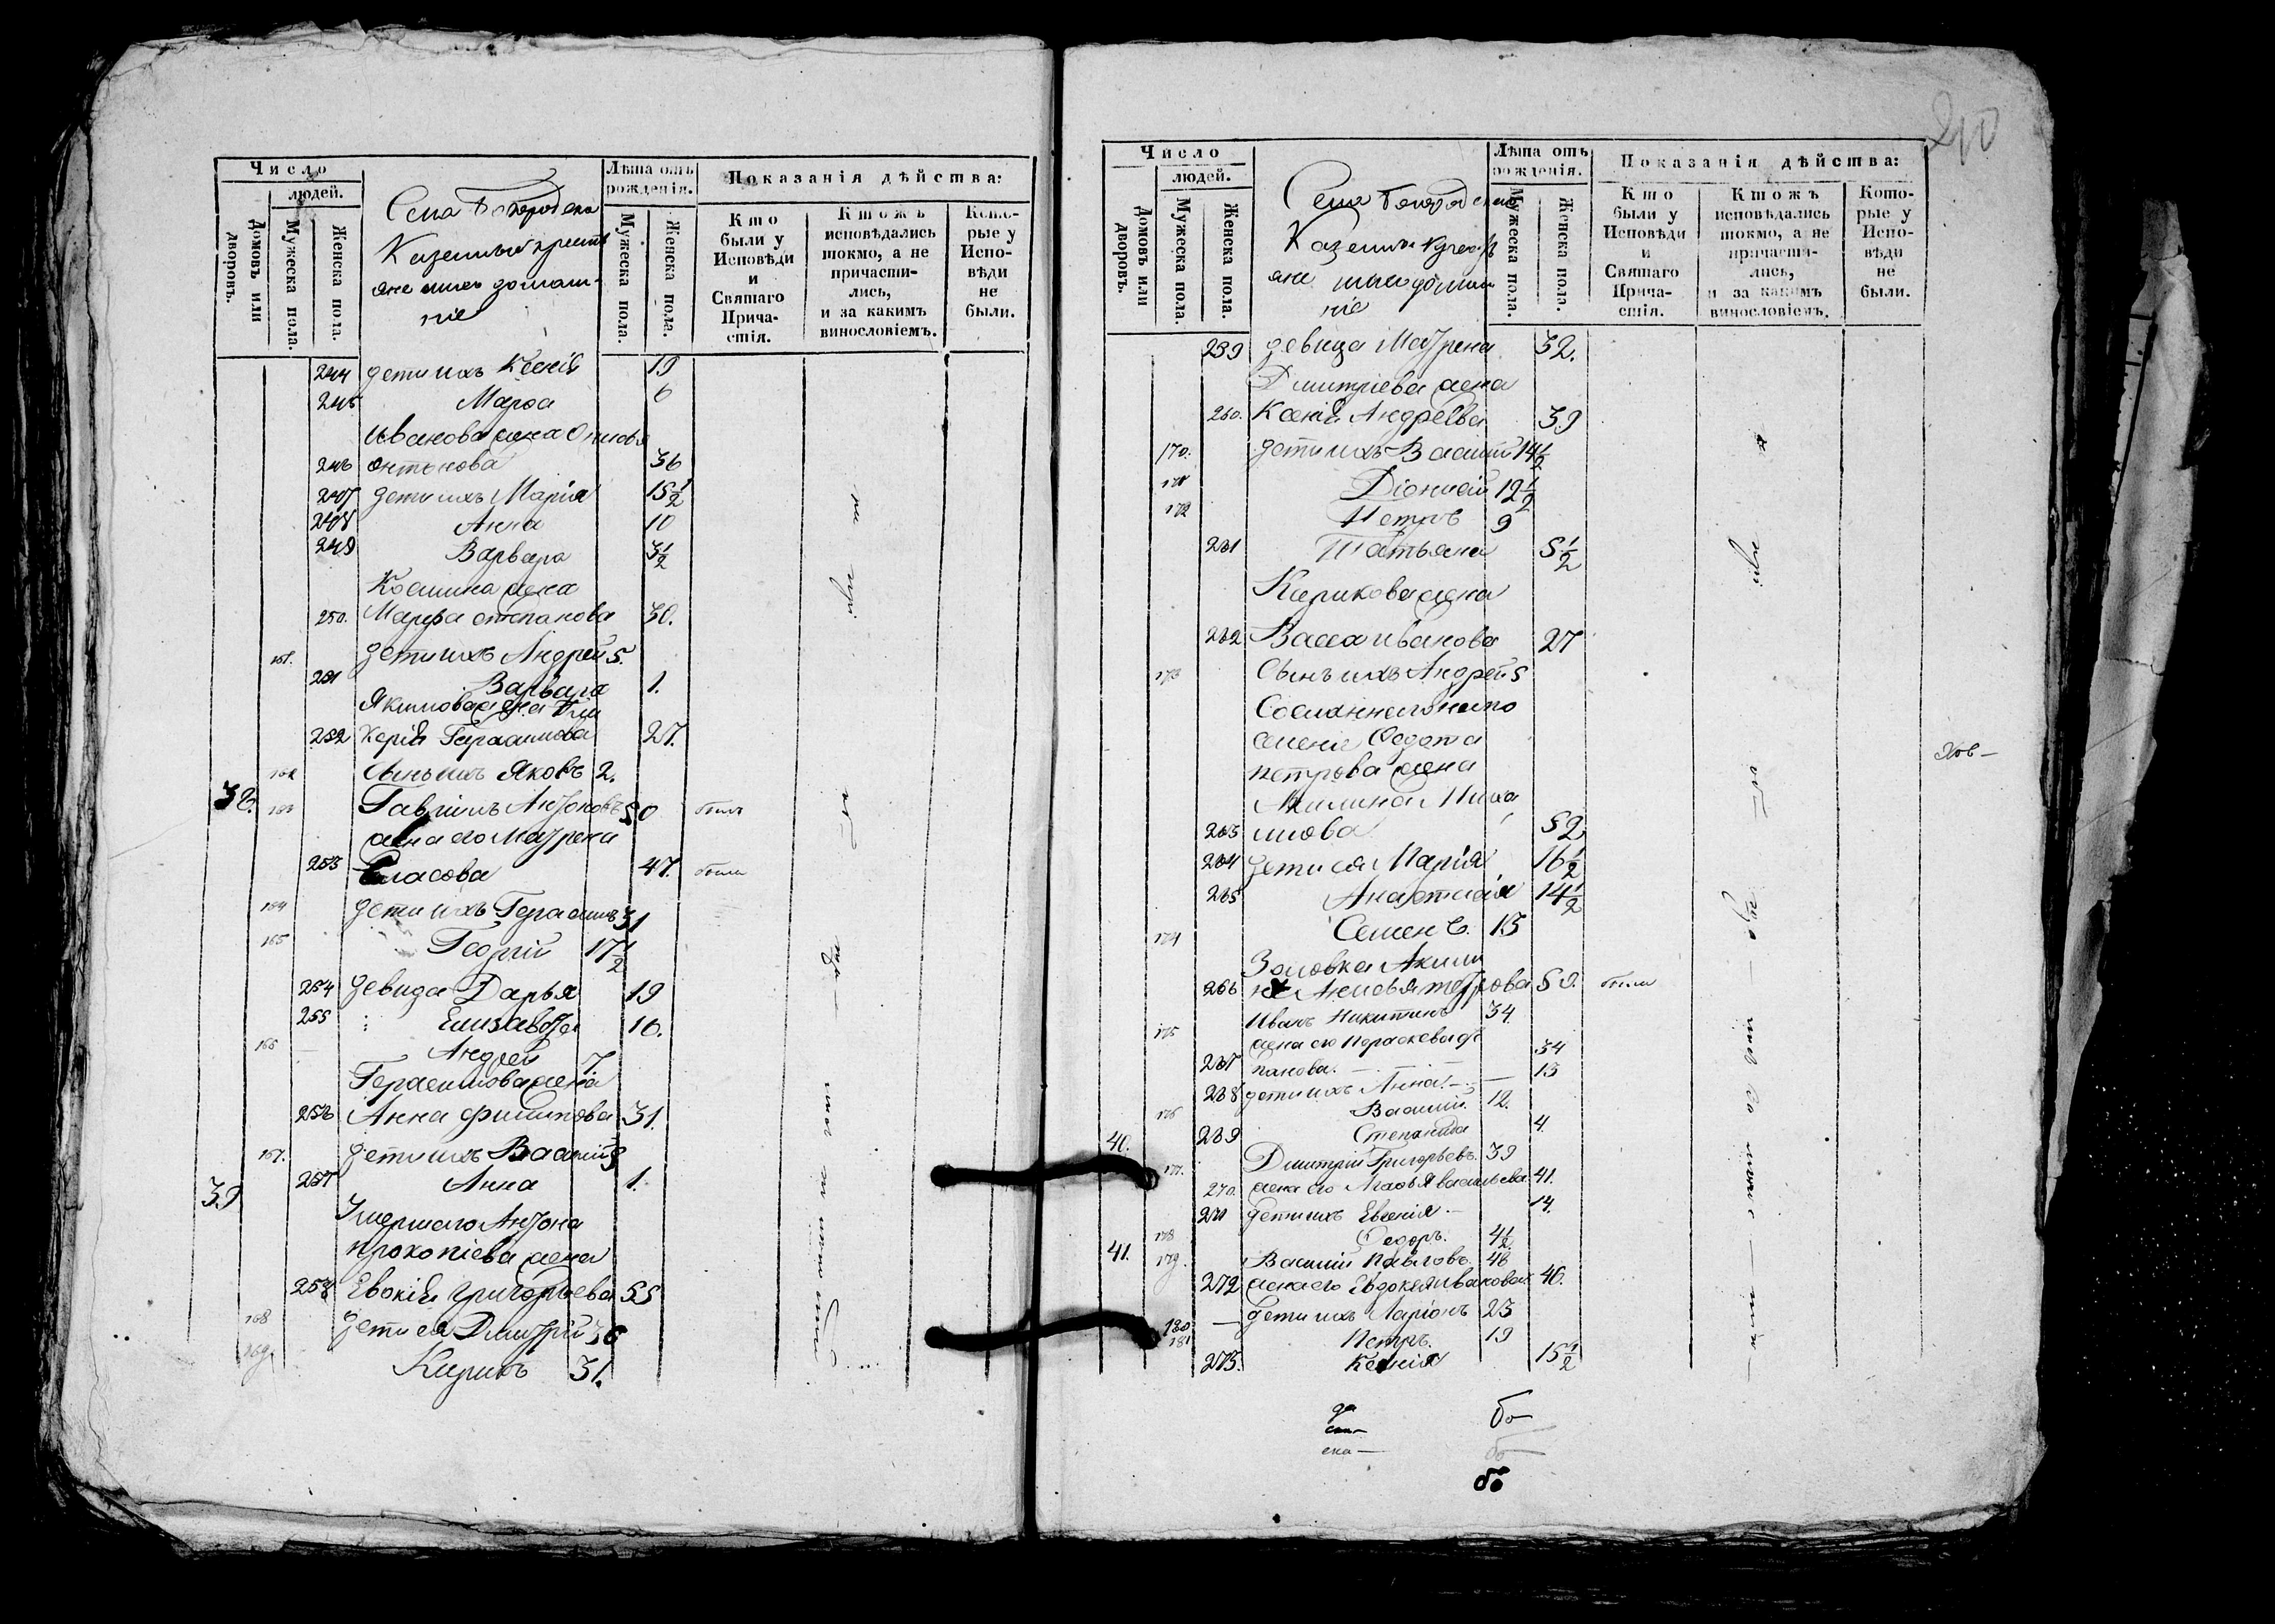 Число
людей.
Домовъ или дворовъ.
Мужеска пола.
Женска пола.
Села Богородска
Казенные крестья
яне ихъ домаш-
ніе
Лѣта отъ рожденія.
Мужеска пола.
Женска пола.
Показанія дѣйства:
Кто были у Исповѣди и Святаго Прича-стія.
Ктожъ исповѣдались токмо, а не причасти-лись, и за какимъ винословіемъ.
Кото-рые у Испо-вѣди не были.
244 дети ихъ Ксенія 19
245 Марѳа 6
Иванова жена
246 Антонова 36
247 дети ихъ Марія 15 1/2
248 Анна 10
249 Варвара 3 1/2
Космина жена
250. Марфа степанова 30.
161. дети ихъ Андрей 5.
251 Варвара 1.
Якимова жена Гли
252 керія Герасимова 27.
162 сынъ ихъ Яковъ 2.
38. 163 Гавріилъ Антоновъ 50 былъ
жена его Матрена
253 Власова 47. была
164 дети ихъ Герасимъ 31
165 Георгій 17 1/2
254 девица Дарья 19
255 Елизавета 16.
166 Андрей 7.
Герасимова жена
256 Анна филипова 31.
167. дети ихъ Василій 5
257 Анна 1.
39 Умершаго Антона
прокопіева жена
258 Евокія григорьева 55
168 дети ея Дмитрій 36
169. Кирикъ 31.
210
Число
людей.
Домовъ или дворовъ.
Мужеска пола.
Женска пола.
Села Богородска
Казенныя крестья
яне ихъ домаш
ніе
Лѣта отъ рожденія.
Мужеска пола.
Женска пола.
Показанія дѣйства:
Кто были у Исповѣди и Святаго Прича-стія.
Ктожъ исповѣдались токмо, а не причасти-лись, и за какимъ винословіемъ.
Кото-рые у Испо-вѣди не были.
259 девица Матрена 32.
Дмитріева жена
260. Ксенія Андреева 39
170. дети ихъ Василій 14 1/2
171 Діонисій 12 1/2
172 Петръ 9
261 Татьяна 5 1/2
Кирикова жена
262 Васса иванова 27
173 Сынъ ихъ Андрей 5
Сосланнаго на по
селеніе Ѳедота
петрова жена
Акилина Миха
263 илова 52
264 дети ея Марія 16 1/2
265 Анастасія 14 1/2
174 Семенъ. 13
Золовка Акили
266 на петрова 50. была
175 Иванъ Никитинъ 34.
жена его Параскева сте
267 панова. 34
268 дети ихъ Анна. 13
176 Василій. 12.
269 Степанида 4.
40. 177. Дмитрій Григорьевъ. 39
270. жена его васильева 41.
271 дети ихъ Евгенія. 14.
178 Ѳедоръ. 4 1/2
41. 179. Василій Павловъ. 46
272 жена его Евдокея иванова 46.
180 дети ихъ Ларіонъ 23
181 Петръ. 19
273. Ксенія 15 1/2